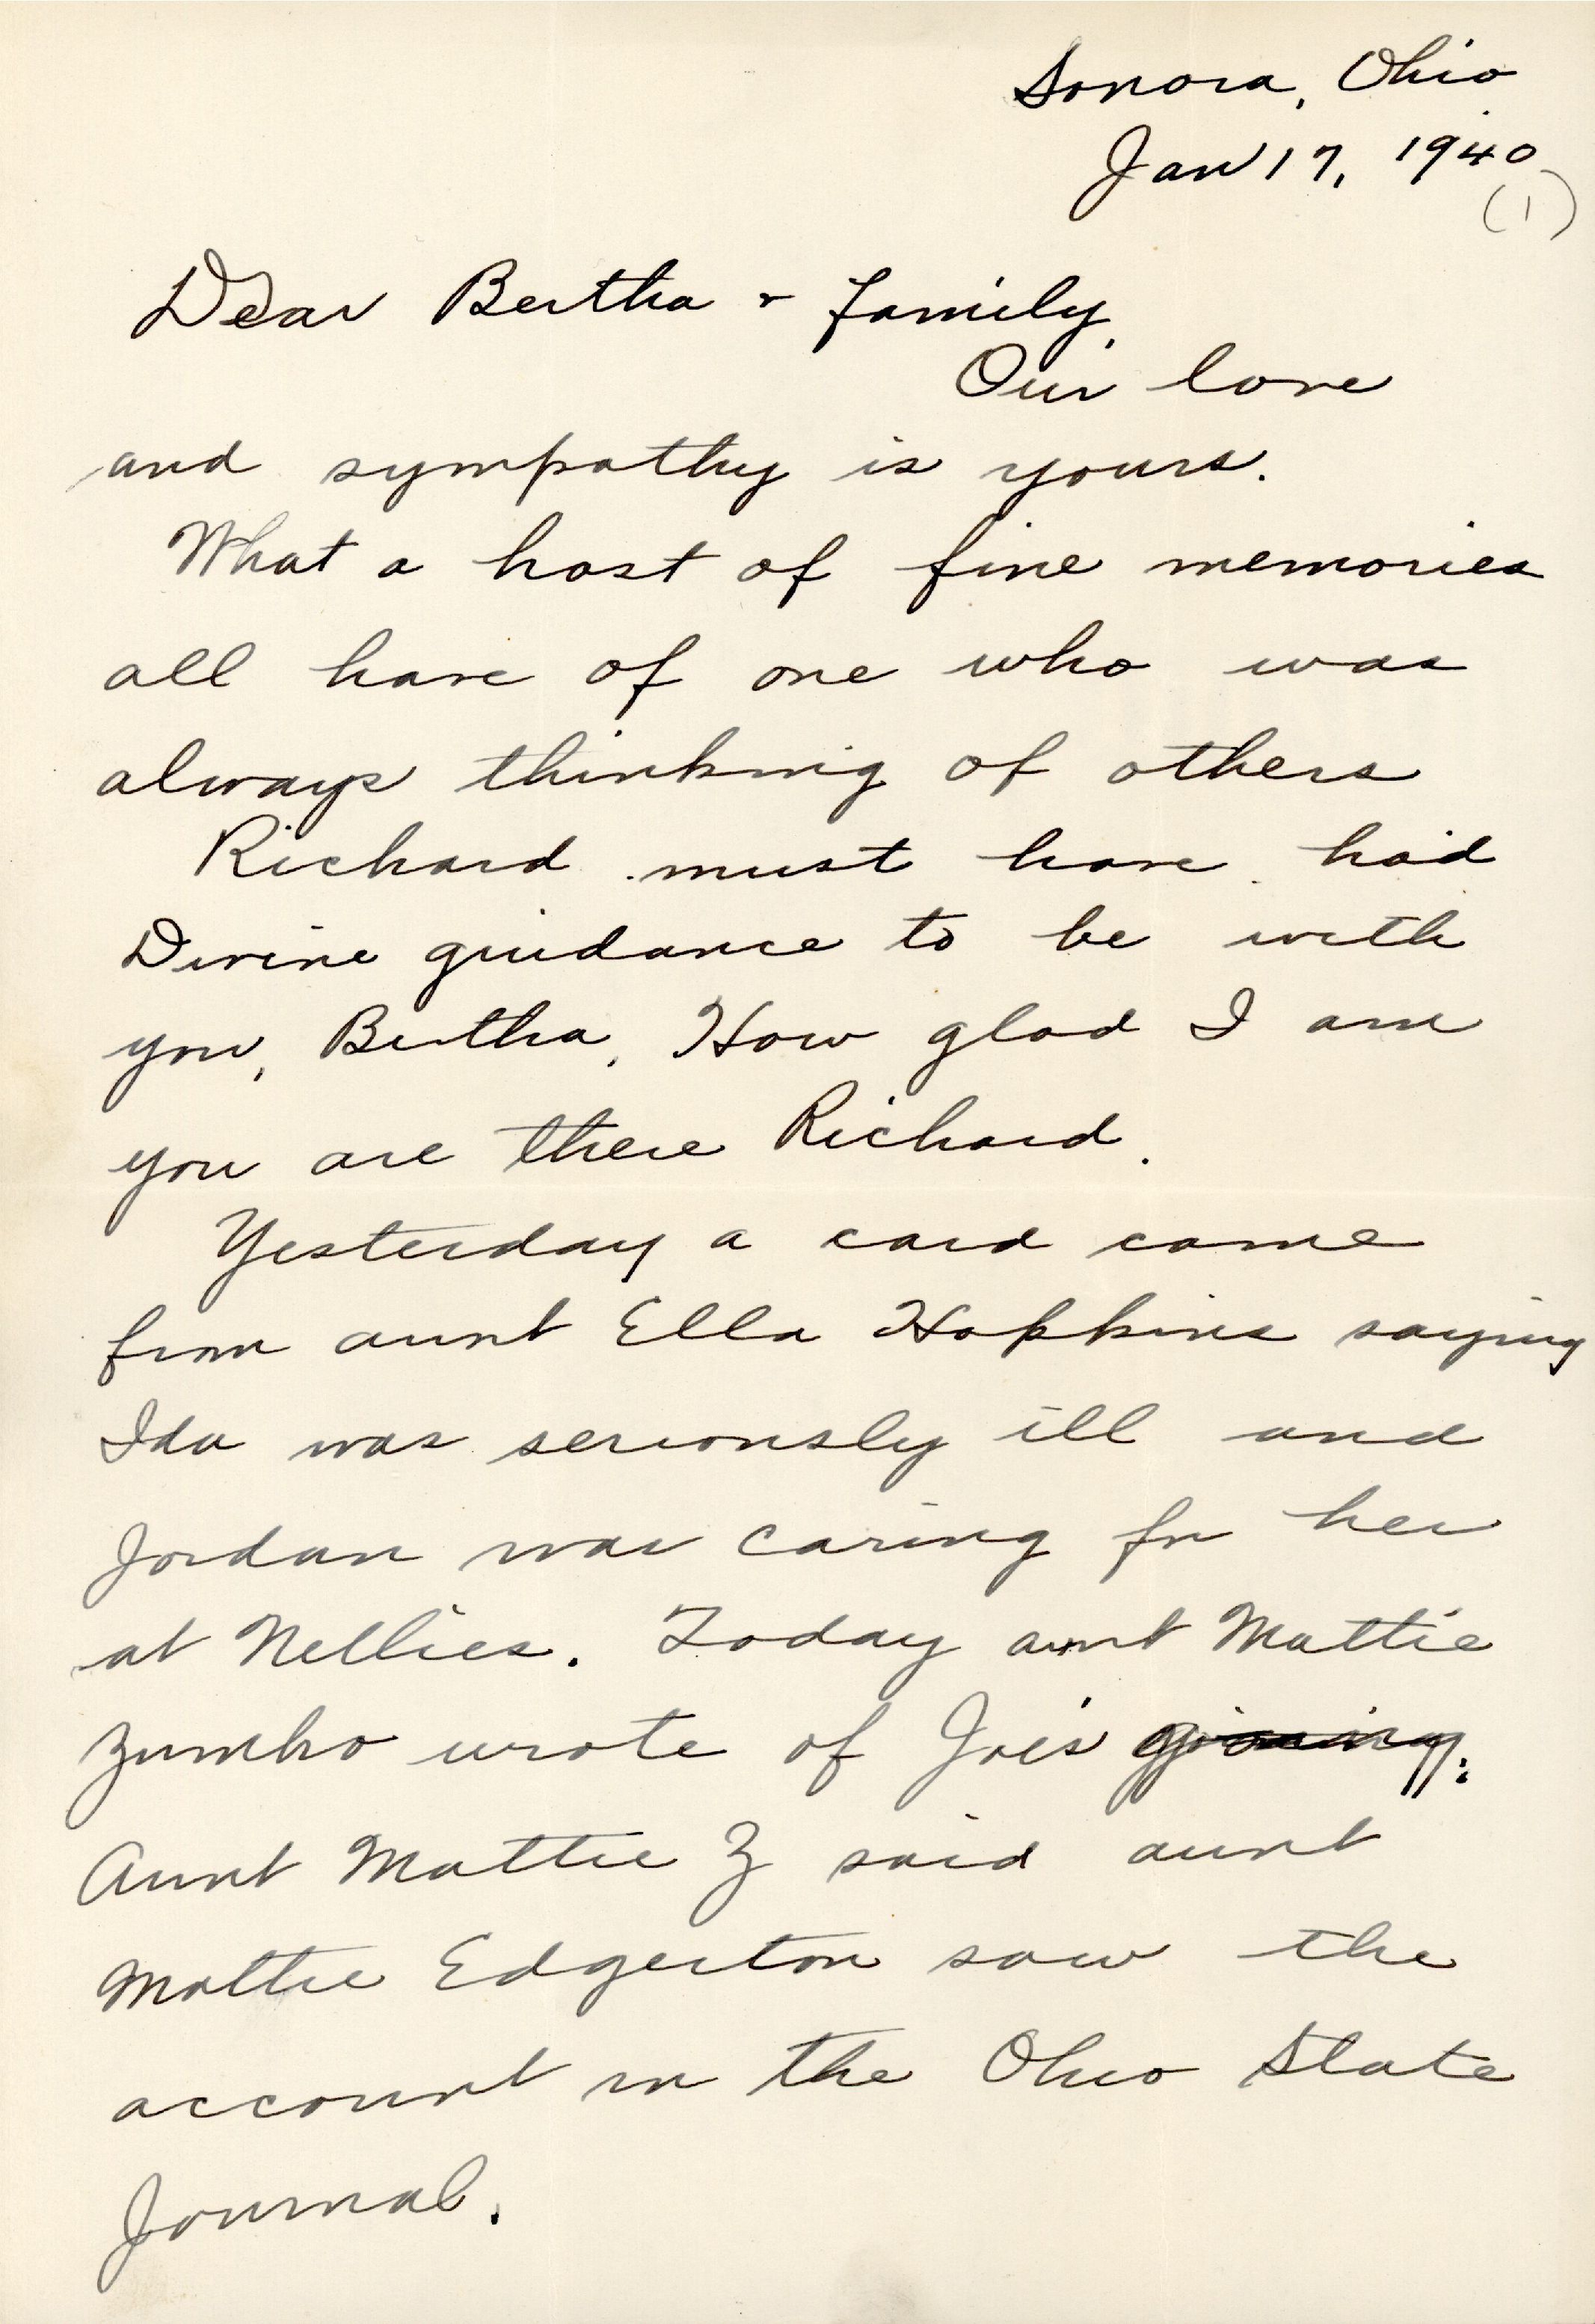 Sonora, Ohio
Jan 17, 1940
(1)
Dear Bertha & family,
Our love
and sympathy is yours.
What a host of fine memories
all have of one who was
always thinking of others
Richard must have had
Divine guidance to be with
you, Bertha. How glad I am
you are there Richard.
Yesterday a card came
from aunt Ella Hopkins saying
Ida was seriously ill and
Jordan was caring for her
at Nellies. Today aunt Mattie
Zumbro wrote of Joe's
Aunt Mattie Z said aunt
Mattie Edgerton saw the
account in the Ohio State
Journal.